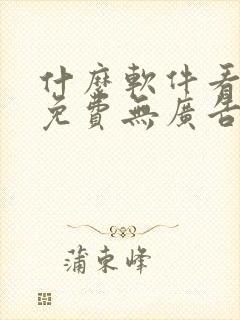 什麼軟件看
免費無廣告
蒲東峰